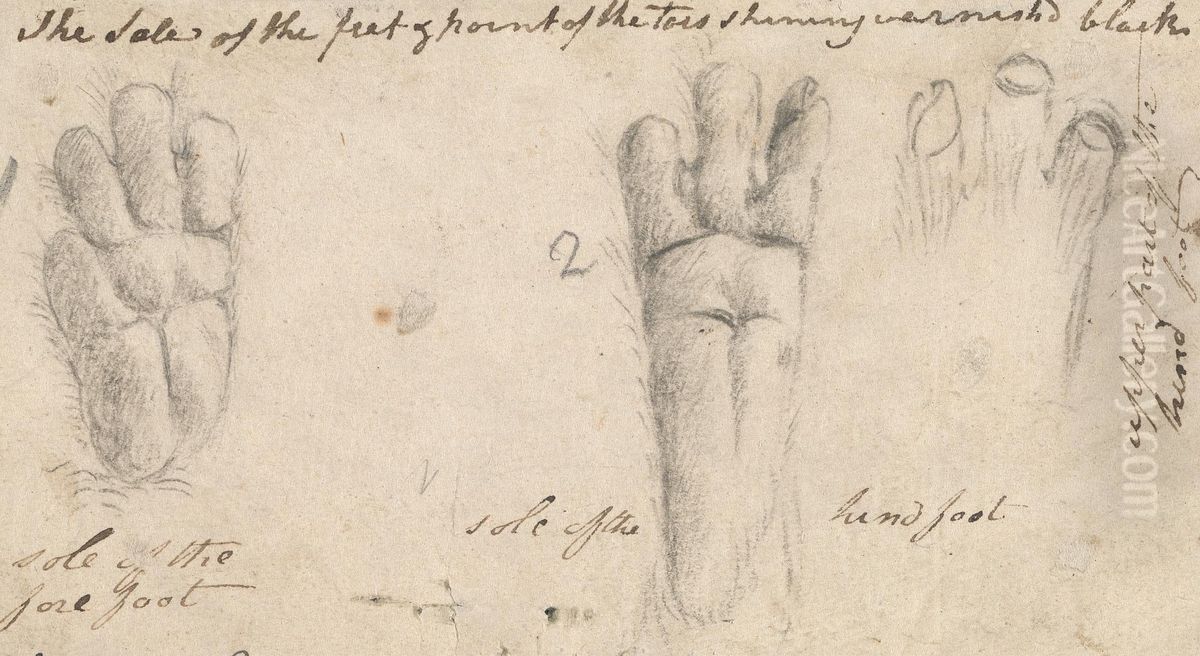 The Sole of the feet & point of the Toes shining varnish'd black
2
upper part of the
hind foot
sole of the
hind foot
sole of the
fore foot